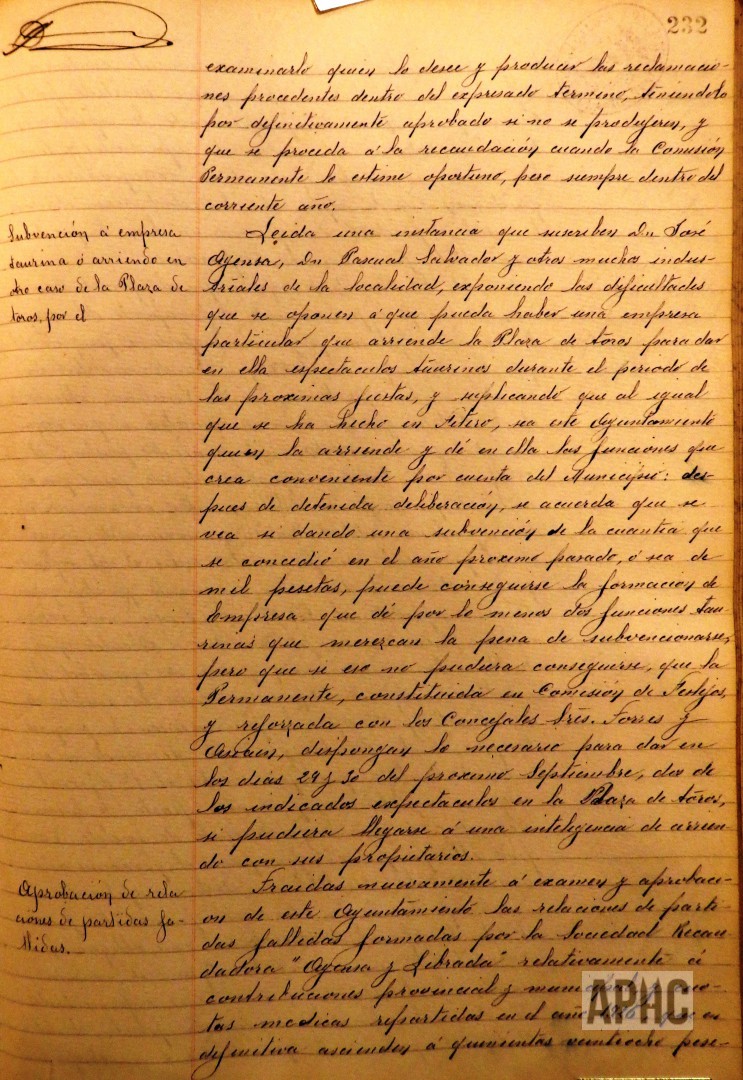 232
examinarlo quien lo desee y producir las reclamacio-
nes procedentes dentro del expresado termino, teniendolo
por definitivamente aprobado si no se produjeren, y
que se proceda á la recaudación cuando la Comisión
Permanente lo estime oportuno, pero siempre dentro del
corriente año.
Subvención á empresa
taurina ó arriendo en
otro caso de la Plaza de
toros, por el
Leida una instancia que suscriben Dn José
Ayensa, Dn Pascual Salvador y otros muchos indus-
triales de la localidad, exponiendo las dificultades
que se oponen á que pueda haber una empresa
particular que arriende la Plaza de toros para dar
en ella espectaculos taurinos durante el periodo de
las proximas fiestas, y suplicando que al igual
que se ha hecho en Fitero, sea este Ayuntamiento
quien la arriende y dé en ella las funciones que
crea conveniente por cuenta del Municipio: des-
pues de detenida deliberación, se acuerda que se
vea si dando una subvención de la cuantia que
se concedió en el año proximo pasado, ó sea de
mil pesetas, puede conseguirse la formacion de
Empresa que dé por lo menos dos funciones tau-
rinas que merezcan la pena de subvencionarse,
pero que si eso no pudiera conseguirse, que la
Permanente, constituida en Comisión de Festejos,
y reforzada con los Concejales Sres. Forres y
dispongan lo necesario para dar en
los dias 29 y 30 del proximo Septiembre, dos de
los indicados expectaculos en la Plaza de toros,
si pudiera llegarse á una inteligencia de arrien-
do con sus propietarios.
Aprobación de rela
ciones de partidas fa-
llidas.
Traidas nuevamente á examen y aprobaci-
on de este Ayuntamiento las relaciones de parti
das fallidas formadas por la Sociedad Recau-
dadora "Ayensa y Librada" relativamente á
contribuciones provincial y municipal y cuo-
tas medicas repartidas en el año 1926 que en
definitiva ascienden á quinientas veintiocho pese-
APHC